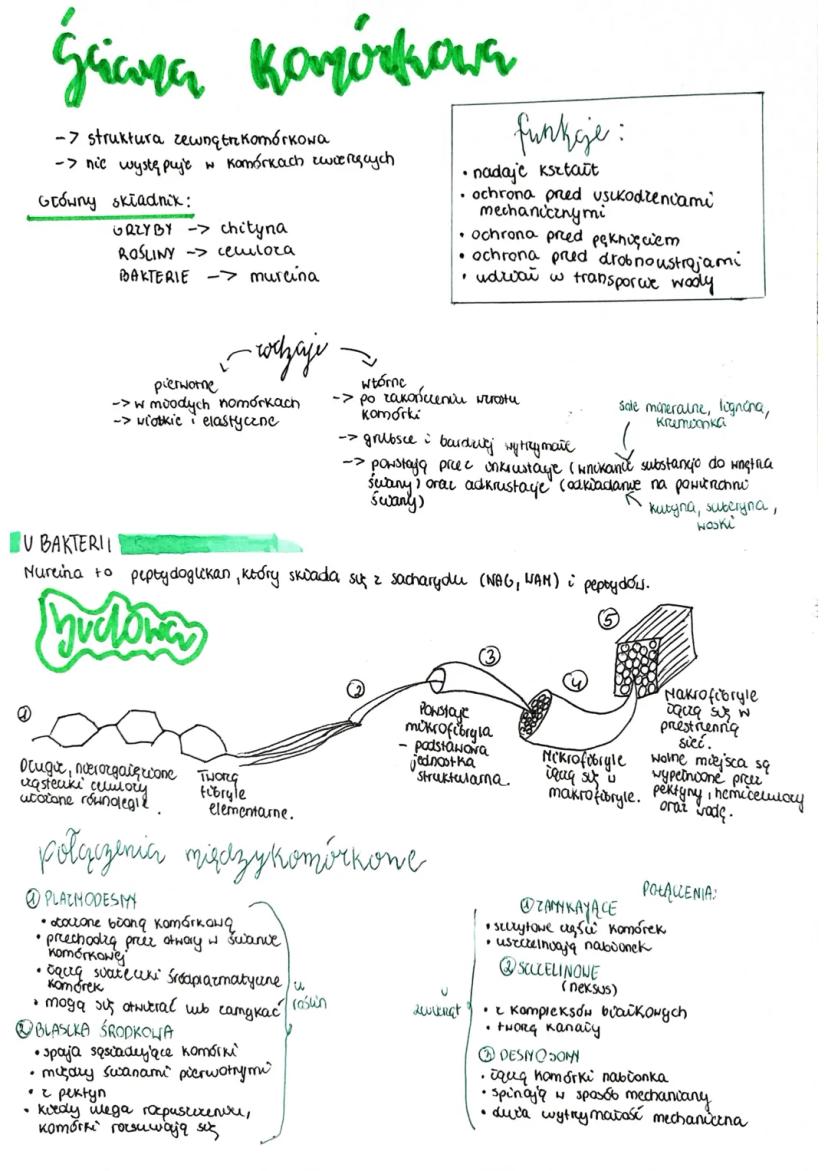 Ściana komórkowa
-> struktura zewnątrzkomórkowa
-> nie występuje w komórkach zwierzęcych
Główny składnik:
GRZYBY -> chityna
ROŚLINY -> celuloza
BAKTERIE -> mureina
funkcje:
• nadaje kształt
• ochrona przed uszkodzeniami
mechanicznymi
• ochrona przed pęknięciem
• ochrona przed drobnoustrojami
• udział w transporcie wody
rodzaje
pierwotne
-> w młodych komórkach
-> wiotkie i elastyczne
wtórne
-> po zakończeniu wzrostu
komórki
-> grubsze i bardziej wytrzymałe
-> powstają przez inkrustację (wnikanie substancji do wnętrza
ściany) oraz adkrustację (odkładanie na powierzchni
ściany)
sole mineralne, lignina,
krzemionka
kutyna, suberyna,
woski
U BAKTERII
Mureina to peptydoglikan, który składa się z sacharydu (NAG, NAM) i peptydów.
budowa
① Długie, nierozgałęzione
cząsteczki celulozy
ułożone równolegle.
② Tworzą
fibryle
elementarne.
③ Powstaje
mikrofibryla
- podstawowa
jednostka
strukturalna.
④ Mikrofibryle
łączą się w
makrofibryle.
⑤ Makrofibryle
łączą się w
przestrzenną
sieć.
Wolne miejsca są
wypełnione przez
pektyny, hemicelulozy
oraz wodę.
połączenia międzykomórkowe
① PLAZMODESMY
• otoczone błoną komórkową
• przechodzą przez otwory w ścianie
komórkowej
• łączą siateczki śródplazmatyczne
komórek
• mogą się otwierać lub zamykać
② BLASZKA ŚRODKOWA
• spaja sąsiadujące komórki
• między ścianami pierwotnymi
• z pektyn
• kiedy ulega rozpuszczeniu,
komórki rozsuwają się
u
roślin
POŁĄCZENIA:
u
zwierząt
① ZAMYKAJĄCE
• szczytowe części komórek
• uszczelniają nabłonek
② SZCZELINOWE
(neksus)
• z kompleksów białkowych
• tworzą kanały
③ DESMOSOMY
• łączą komórki nabłonka
• spinają w sposób mechaniczny
• duża wytrzymałość mechaniczna